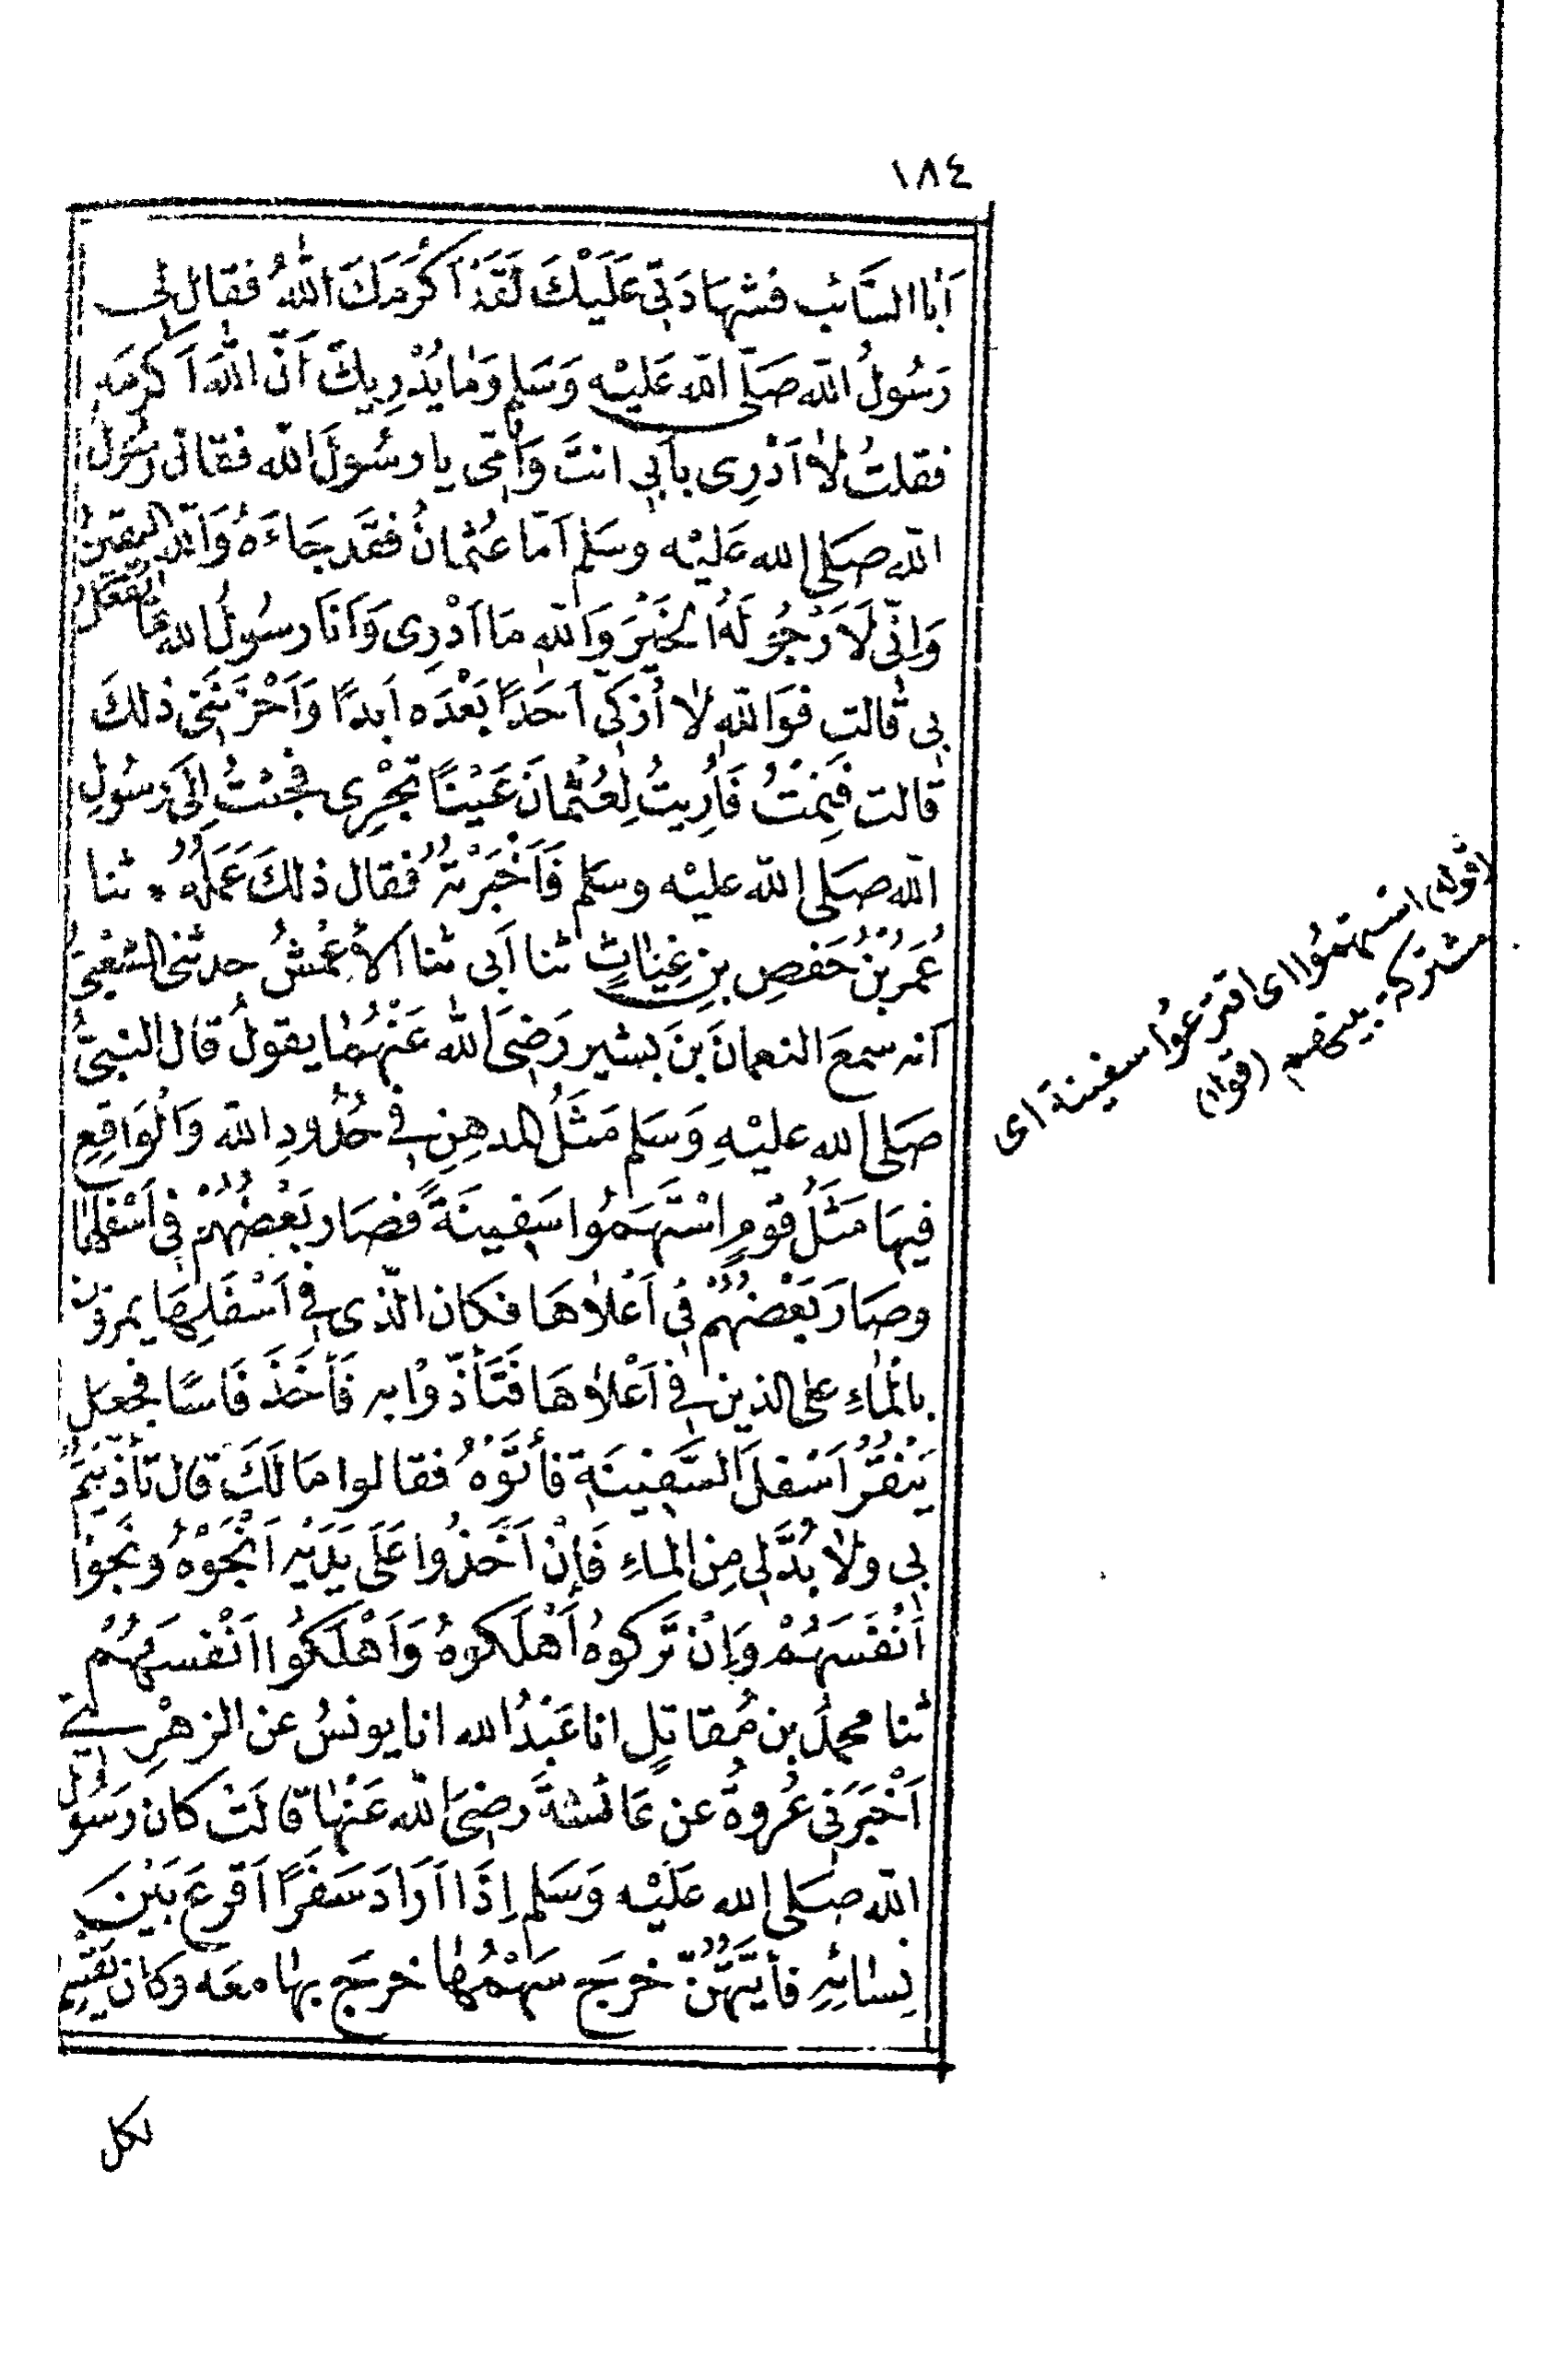 ١٨٤
اَبَا السَّائِبِ فشَهَادَتِى عَلَيْكَ لَقَدْ اَكْرَمَكَ اللّٰهُ فقال لِى
رَسُولُ اللّٰه صَلَّى اللّٰه عَلَيْه وَسَلم وَمَا يُدْرِيكِ اَنَّ اللّٰهَ اَكْرَمَه
فقلتُ لاَ اَدْرِى بأَبِى انتَ وَاُمِّى يا رسُولَ اللّٰه فقال رسُولُ
اللّٰه صَلى الله عَلَيْه وسَلم اَمَّا عُثمانُ فقَد جَاءَهُ وَاللّٰهِ اليقينُ
وَاِنِّى لَاَرْجُو لَهُ الخَيْرَ وَاللّٰهِ مَا اَدْرِى وَاَنَا رسُولُ الله مَا يُفْعَلُ
بِى قالت فوَاللّٰهِ لاَ اُزَكِّى اَحَدًا بَعْدَه اَبدًا وَاَحْزَنَنِى ذلكَ
قالت فَنِمْتُ فَاُرِيتُ لِعُثْمانَ عَيْنًا تَجْرِى فجئتُ اِلَى رَسُولِ
اللّٰه صَلى اللّٰه عليْه وسَلم فَاَخْبَرْتُهُ فقال ذلكَ عَمَلُهُ * ثنا
عُمَرُ بْنُ حَفصِ بنِ غِيَاثٍ ثنا اَبى ثنا الاَعْمَشُ حدثنى الشعْبِىُّ
اَنه سمعَ النعمانَ بنَ بشير رَضِىَ اللّٰه عَنْهُمَا يقولُ قال النبىُّ
صَلى الله عليْهِ وَسَلم مَثَلُ المدهِنِ فى حُدُودِ اللّٰه وَالْوَاقِعِ
فيهَا مَثَلُ قومٍ اسْتَهَمُوا سَفِينَةً فصَار بَعْضُهُمْ فى اَسْفَلِهَا
وصَارَ بَعْضُهُمْ فى اَعْلاَهَا فكان الّذى فى اَسْفَلِهَا يمرّون
بالْمَاءِ على الذين فى اَعْلاَهَا فَتَأَذَّوْا به فَأَخَذَ فَاسًا فجعَل
يَنْقُرُ اَسْفلَ السَّفِينَةِ فأتَوْهُ فقالوا مَا لَكَ قال تأَذَّيْتُمْ
بى ولاَ بُدَّ لى مِنَ الماءِ فَاِنْ اَخَذُوا عَلَى يَدَيْهِ اَنْجَوْهُ ونَجَّوْا
اَنْفُسَهُمْ وَاِنْ تَركوهُ اَهْلَكوهُ وَاَهْلَكُوا اَنْفسَهُمْ
ثنا محمدُ بن مُقاتِلٍ انا عَبْدُ الله انا يونسُ عن الزهْرِىّ
اَخْبَرَنى عُروةُ عن عَائشةَ رضِىَ اللّٰه عَنْهَا قالَتْ كان رَسُولُ
اللّٰه صَلى الله عَلَيْه وَسَلم اِذَا اَرَادَ سَفَرًا اَقرعَ بَيْنَ
نِسَائِهِ فأيَّتُهُنَّ خرجَ سَهْمُهَا خرجَ بهَا معَه وَكان يَقْسِمُ
لكل
(قوله) استهموا اى اقترعوا سفينة اى
مشتركة بينهم (قوله)